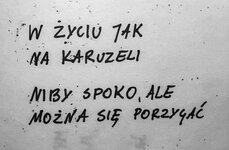 W ŻYCIU JAK
NA KARUZELI
NIBY SPOKO, ALE
MOŻNA SIĘ PORZYGAĆ